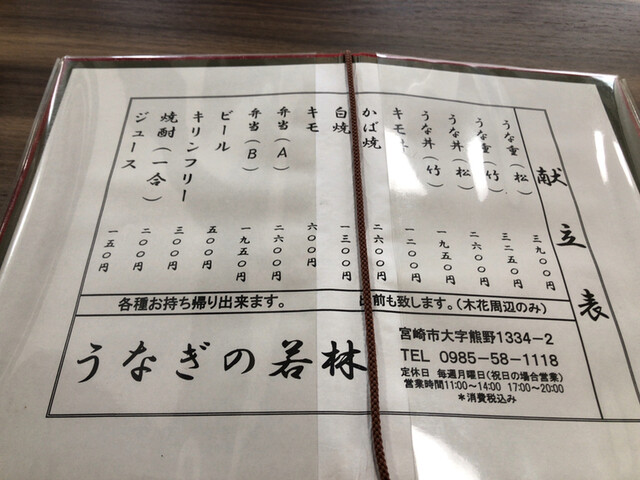 献立表
うな重(松) 三九〇〇円
うな重(竹) 三二五〇円
うな丼(松) 二六〇〇円
うな丼(竹) 一九五〇円
キモ 一二〇〇円
かば焼 二六〇〇円
白焼 一三〇〇円
キモ 六〇〇円
弁当(A) 二六〇〇円
弁当(B) 一九五〇円
ビール 五〇〇円
キリンフリー 三〇〇円
焼酎(一合) 二〇〇円
ジュース 一五〇円
各種お持ち帰り出来ます。 前も致します。(木花周辺のみ)
うなぎの若林
宮崎市大字熊野1334-2
TEL 0985-58-1118
定休日 毎週月曜日(祝日の場合営業)
営業時間11:00~14:00 17:00~20:00
*消費税込み